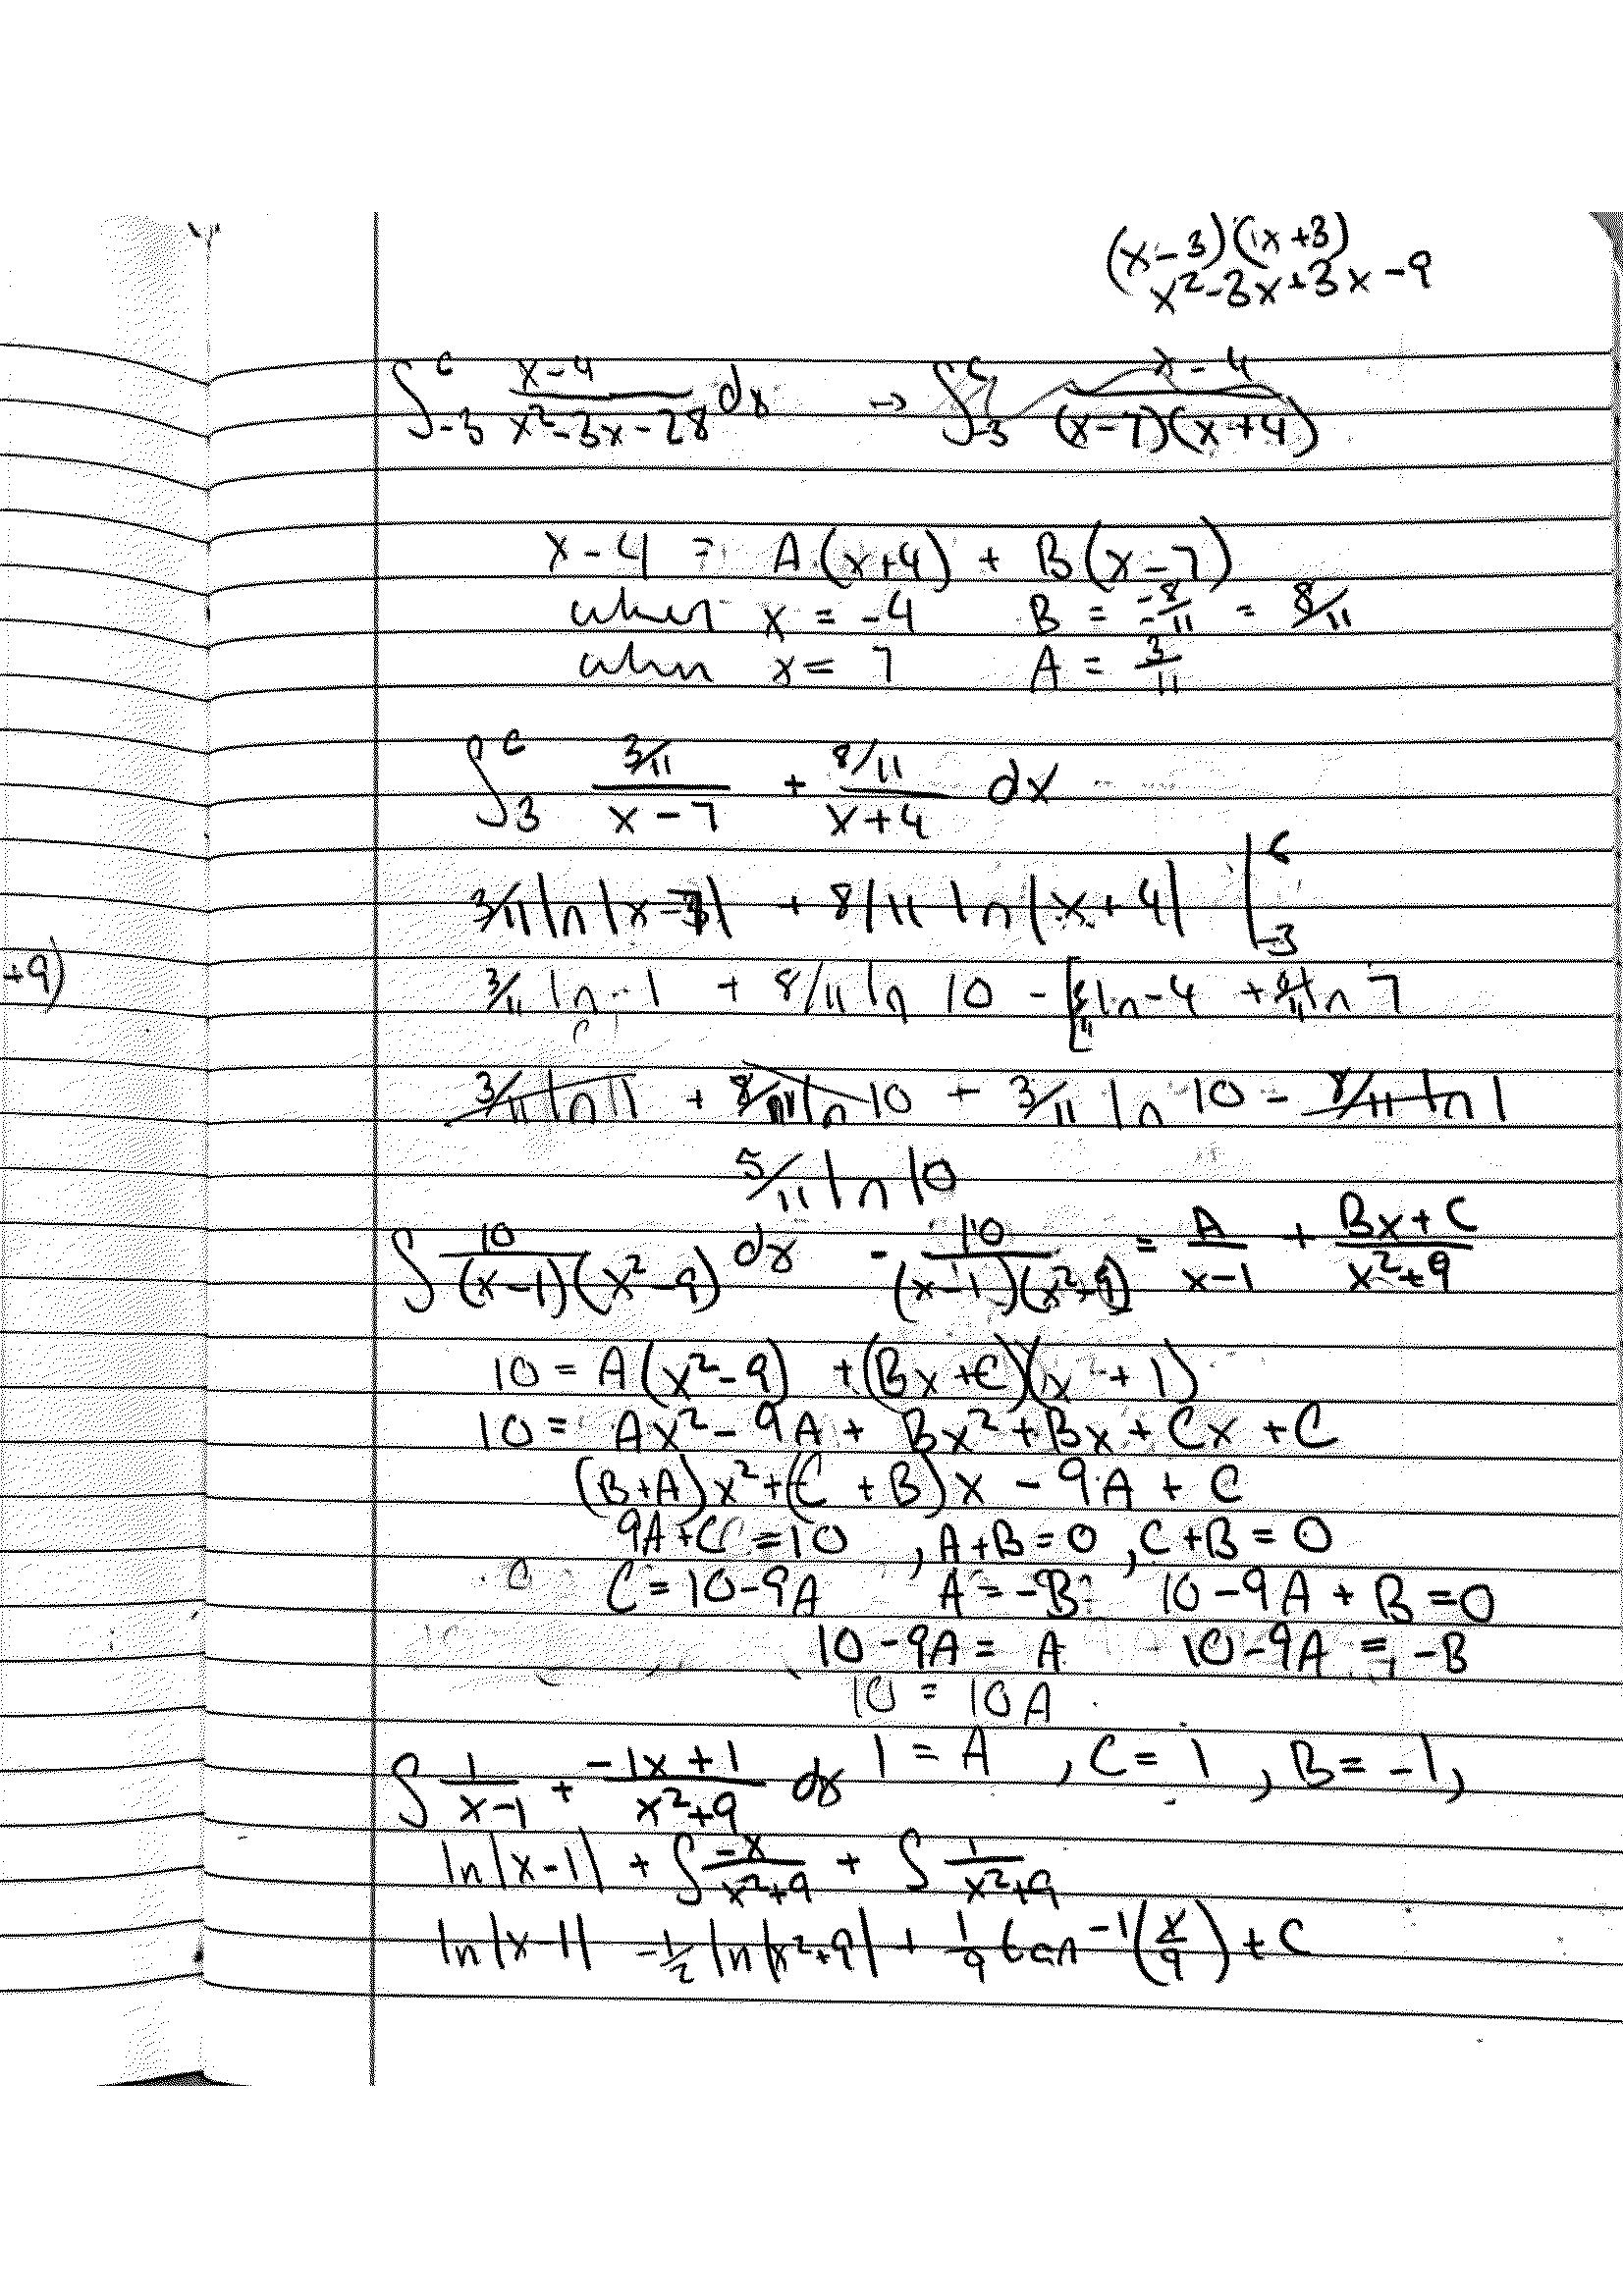 (x-3)(x+3)
x²-3x+3x-9
∫₋₃⁶ (x-4)/(x²-3x-28) dx → ∫₋₃⁶ (x-4)/((x-7)(x+4))
x-4 = A(x+4) + B(x-7)
when x = -4 B = -8/-11 = 8/11
when x = 7 A = 3/11
∫₃⁶ (3/11)/(x-7) + (8/11)/(x+4) dx
3/11 ln|x-7| + 8/11 ln|x+4| |₋₃⁶
+9)
3/11 ln -1 + 8/11 ln 10 - [3/11 ln -4 + 8/11 ln 7
3/11 ln 1 + 8/11 ln 10 + 3/11 ln 10 - 8/11 ln 1
5/11 ln 10
∫ 10/((x-1)(x²-9)) dx = 10/((x-1)(x²+9)) = A/(x-1) + (Bx+C)/(x²+9)
10 = A(x²-9) + (Bx+C)(x+1)
10 = Ax²-9A + Bx²+Bx+Cx+C
(B+A)x²+(C+B)x - 9A + C
9A+C = 10 , A+B=0 , C+B=0
C = 10-9A A = -B 10-9A+B=0
10-9A = A 10-9A = -B
10 = 10A
1 = A , C = 1 , B = -1,
∫ 1/(x-1) + (-1x+1)/(x²+9) dx
ln|x-1| + ∫ -x/(x²+9) + ∫ 1/(x²+9)
ln|x-1| -1/2 ln|x²+9| + 1/9 tan⁻¹(x/9) + C